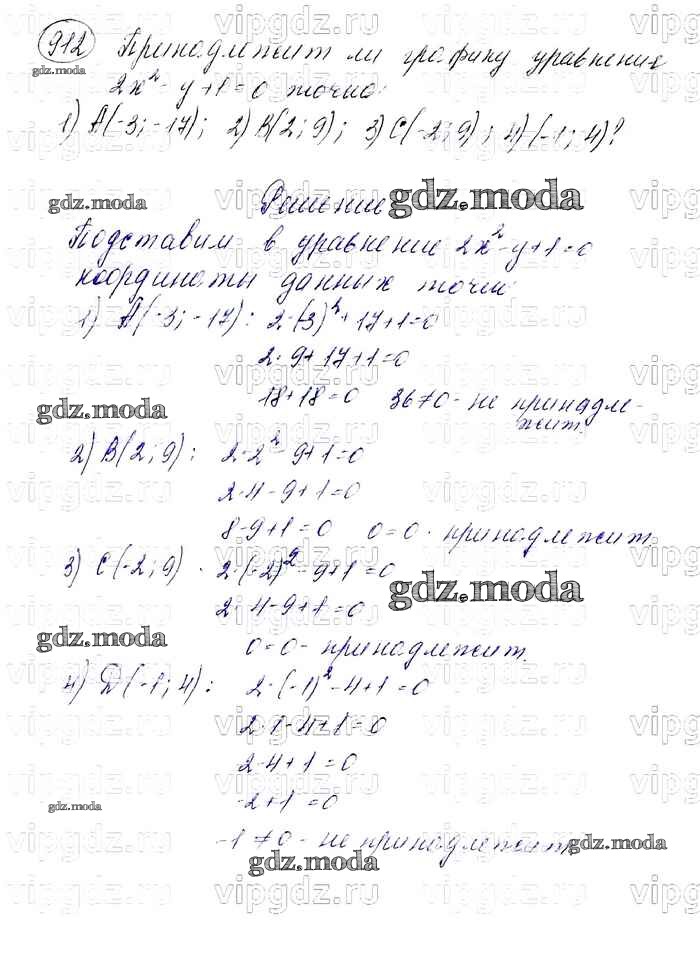 912 Принадлежит ли графику уравнения
2x² - y + 1 = 0 точка:
1) A(-3; -17); 2) B(2; 9); 3) C(-2; 9); 4) (-1; 4)?
Решение
Подставим в уравнение 2x² - y + 1 = 0
координаты данных точек
1) A(-3; -17): 2·(3)² + 17 + 1 = 0
2·9 + 17 + 1 = 0
18 + 18 = 0 36 ≠ 0 - не принадле-
жит.
2) B(2; 9): 2·2² - 9 + 1 = 0
2·4 - 9 + 1 = 0
8 - 9 + 1 = 0 0 = 0 - принадлежит.
3) C(-2; 9) 2·(-2)² - 9 + 1 = 0
2·4 - 9 + 1 = 0
0 = 0 - принадлежит.
4) D(-1; 4): 2·(-1)² - 4 + 1 = 0
2·1 - 4 + 1 = 0
2 - 4 + 1 = 0
-2 + 1 = 0
-1 ≠ 0 - не принадлежит.
gdz.moda
vipgdz.ru